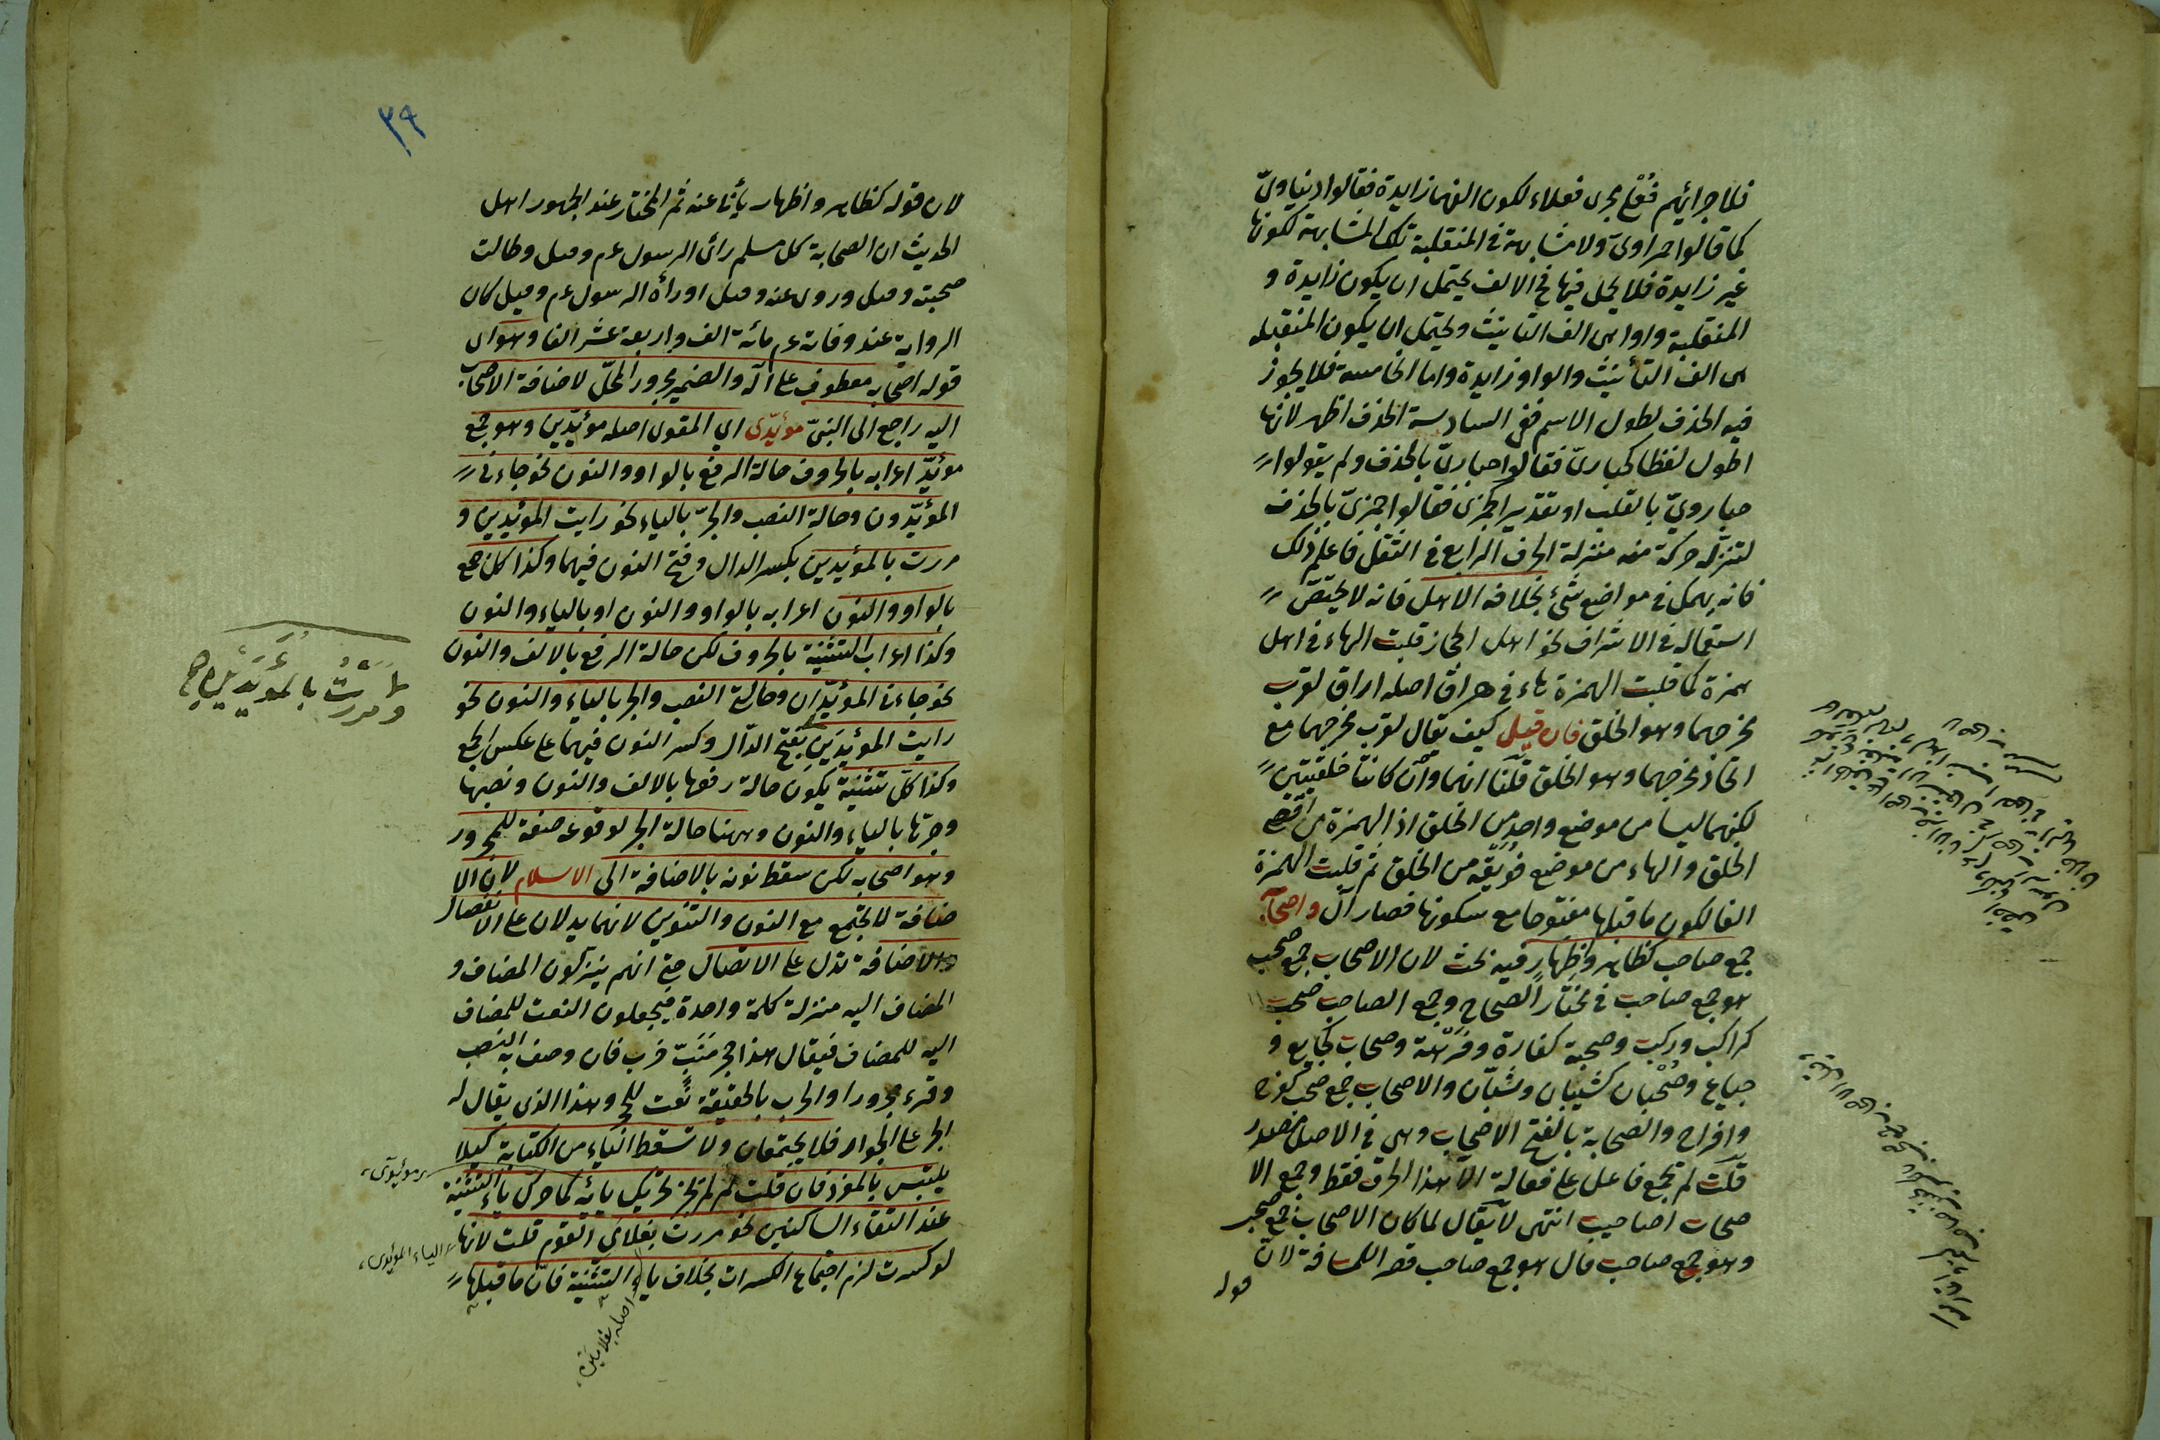 فلما جرائهم فُعْلى مجرى فعلاء لكون الفهما زايدة فقالوا دنياويّ
كما قالوا حمراويّ ولا مشابهة في المنقلبة تلك المشابهة لكونها
غير زايدة فلا يحمل فيها في الالف يحتمل ان يكون زايدة و
المنقلبة واوا هى الف التانيث ويحتمل ان يكون المنقبله
هى الف التأنيث والواو زايدة واما الخامسة فلا يجوز
فيه الحذف لطول الاسم ففى السادسة الحذف اظهر لانها
اطول لفظا كحبارىّ فقالوا حباريّ بالحذف ولم يقولوا
حبارويّ بالقلب او تقديرا كجمزى فقالوا جمزيّ بالحذف
لتنزّله حركة ميمه منزلة الحرف الرابع في الثقل فاعلم ذلك
فانه يهمك في مواضع شتى بخلافه الاهل فانه لا يختصّ
استعماله في الاشراف نحو اهل الحجاز قلبت الهاء في اهل
همزة كما قلبت الهمزة هاء في هراق اصله اراق لقرب
مخرجهما وهو الحلق فان قيل كيف يقال لقرب مخرجهما مع
اتحاذ مخرجهما وهو الحلق قلنا انهما وان كانتا حلقيتين
لكنهما ليسا من موضع واحد من الحلق اذ الهمزة من اقصى
الحلق والهاء من موضع فُوَيْقه من الحلق ثم قلبت الهمزة
الفا لكون ما قبلها مفتوحا مع سكونها فصار آل واصحابه
جمع صاحب كظاهر واظهار فيه بحث لان الاصحاب جمع صحب
هو جمع صاحب في مختار الصحاح وجمع الصاحب صحب
كراكب وركب وصحبة كفارة وفرهة وصحاب كجايع و
جياع وصُحْبان كشبّان وشبّان والاصحاب جمع صحب كفرخ
وافراخ والصحابة بالفتح الاصحاب وهى في الاصل مصدر
قلت لم تجمع فاعل على فعالة الا هذا الحرف فقط وجمع الا
صحاب اصاحيب انتهى لا يقال لما كان الاصحاب جمع صحب
وهو جمع صاحب قال هو جمع صاحب قصر اللمسافة لانّ
قوله
٣٩
لان قوله كظاهر واظهار يأبا عنه ثم المختار عند الجمهور اهل
الحديث ان الصحابة كل مسلم رأى الرسول عم وقيل وطالت
صحبته وقيل وروى عنه وقيل او رأه الرسول عم وقيل كان
الرواية عند وفاته عم مائة الف واربعة عشر الفا وهو اى
قوله اصحابه معطوف على آله والضمير مجرور المحلّ لاضافة الاصحاب
اليه راجع الى النبىّ مؤيّدى اى المقوى اصله مؤيّدين وهو جمع
مؤيّد اعرابه بالحروف حالة الرفع بالواو والنون نحو جاءنى
المؤيّدون وحالة النصب والجرّ بالياء نحو رايت المؤيدين و
مررت بالمؤيدين بكسر الدال وفتح النون فيهما وكذا كل جمع
بالواو والنون اعرابه بالواو والنون او بالياء والنون
وكذا اعراب التثنية بالحروف لكن حالة الرفع بالالف والنون
نحو جاءنا المؤيّدان وحالة النصب والجر بالياء والنون نحو
رايت المؤيدَين بفتح الدّال وكسر النون فيهما على عكس الجمع
ومررت بالمؤيَّدَيْنِ صح
وكذا كلّ تثنية يكون حالة رفعها بالالف والنون ونصبها
وجرّها بالياء والنون وههنا حالة الجر لوقوعه صفة للمجرور
وهو اصحابه لكن سقط نونه بالاضافة الى الاسلام لان الا
ضافة لا يجتمع مع النون والتنوين لانهما يدلان على الانفصال
والاضافة تدل على الاتصال حتى انهم ينزلون المضاف و
المضاف اليه منزلة كلمة واحدة فيجعلون النعت للمضاف
اليه للمضاف فيقال هذا جحر ضبّ خرب فان وصف به الضب
وقرء مجرورا والخرب بالحقيقة نعت للجحر وهذا الذى يقال له
الجر على الجوار فلا يجتمعان ولا تسقط الياء من الكتابة كيلا
يلتبس بالمفرد فان قلت لم لم يجز تحريك يائه كما حرك ياء التثنية
عند التقاء الساكنين نحو مررت بغلامَىِ القوم قلت لانها
اى الياء المؤيدى
لو كسرت لزم اجتماع الكسرات بخلاف ياء التثنية فانّ ما قبلها
اصله بغلامين